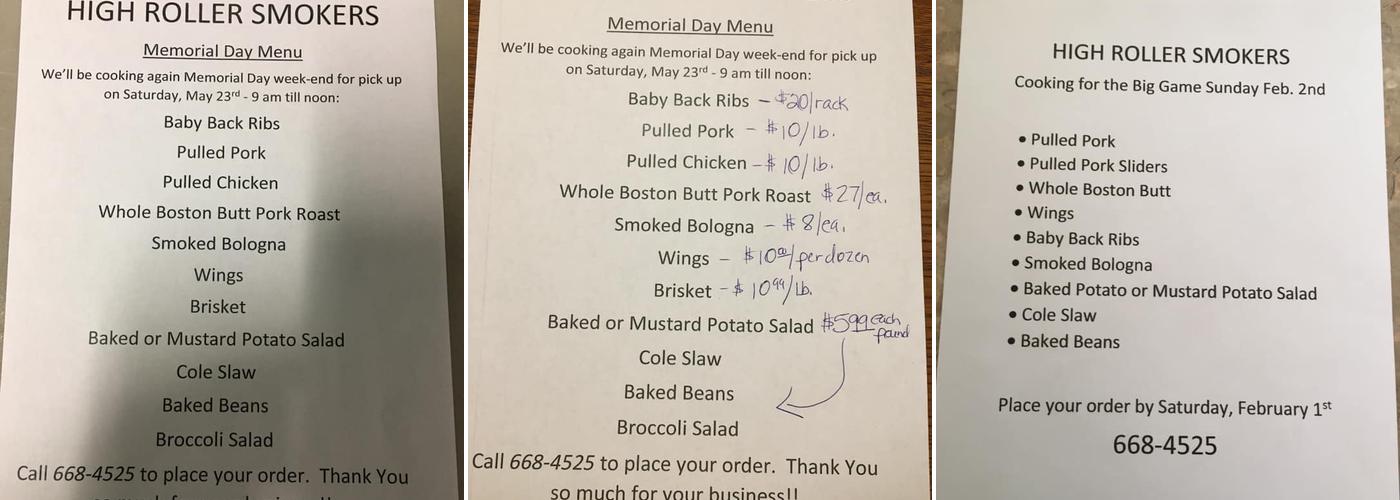 HIGH ROLLER SMOKERS
Memorial Day Menu
We'll be cooking again Memorial Day week-end for pick up
on Saturday, May 23rd - 9 am till noon:
Baby Back Ribs
Pulled Pork
Pulled Chicken
Whole Boston Butt Pork Roast
Smoked Bologna
Wings
Brisket
Baked or Mustard Potato Salad
Cole Slaw
Baked Beans
Broccoli Salad
Call 668-4525 to place your order. Thank You
Memorial Day Menu
We'll be cooking again Memorial Day week-end for pick up
on Saturday, May 23rd - 9 am till noon:
Baby Back Ribs – $20/rack
Pulled Pork – $10/lb.
Pulled Chicken – $10/lb.
Whole Boston Butt Pork Roast $27/ea.
Smoked Bologna – $8/ea.
Wings – $10.00/per dozen
Brisket – $10.99/lb.
Baked or Mustard Potato Salad $5.99 each pound
Cole Slaw
Baked Beans
Broccoli Salad
Call 668-4525 to place your order. Thank You
so much for your business!!
HIGH ROLLER SMOKERS
Cooking for the Big Game Sunday Feb. 2nd
• Pulled Pork
• Pulled Pork Sliders
• Whole Boston Butt
• Wings
• Baby Back Ribs
• Smoked Bologna
• Baked Potato or Mustard Potato Salad
• Cole Slaw
• Baked Beans
Place your order by Saturday, February 1st
668-4525